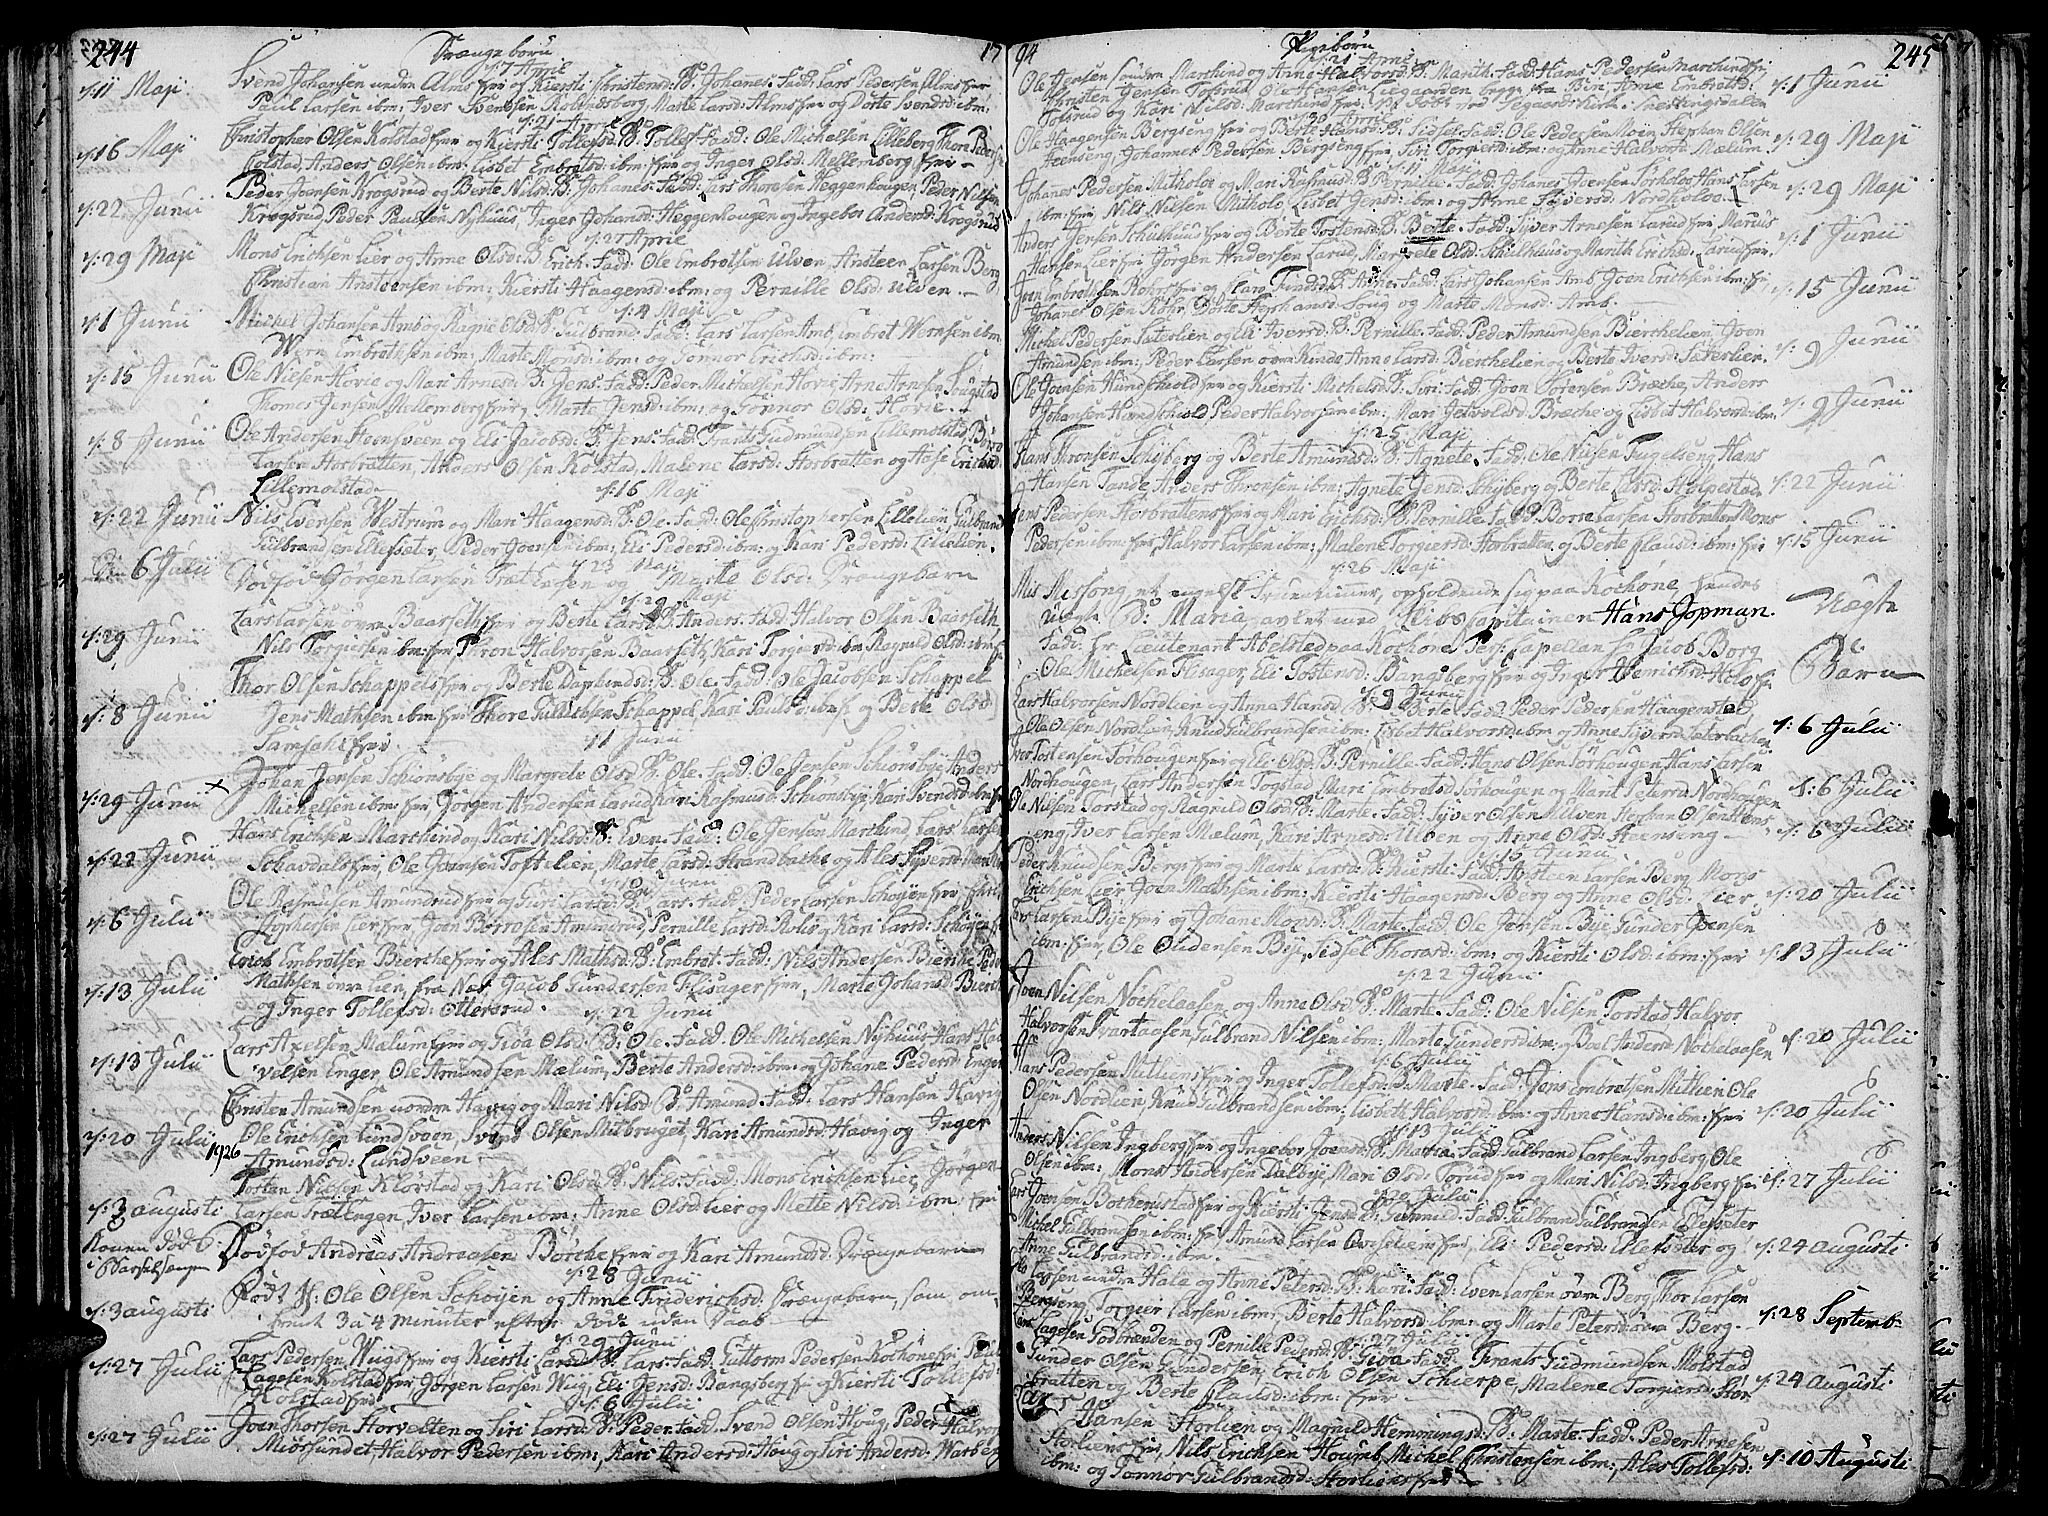 244 Drengebørn 17
d: 7 Aprie
d: 11 Maji Svend Johansen under Alms fæi og Kiersti Christensd: B. Johanes. Fadd: Lars Pedersen Alms fæi
Poul Larsen ibm: Iver Svensen Kolmosborg, Marte Larsd: Alms fæi og Dorte Svendsd: ibm:
d: 21 Aprie
d: 16 Maji Christopher Olsen Kolstad fæi og Kiersti Tollefsd: B. Tollef. Fadd: Ole Michelsen Lilleberg Thore Peders:
Kolstad, Anders Olsen ibm: Lisbet Embretsd: ibm: fæi og Inger Olsd: Mellemberg fæi
d: 22 Junii Peder Joensen Krogsrud og Berte Nilsd: B: Johanes. Fadd: Lars Thoresen Heggenhougen, Peder Nilsen
Krogsrud, Peder Paulsen Nyhuus, Inger Johansd: Heggenhougen og Ingebor Andersd: Krogsrud
d: 27 Aprie
d: 29 Maji Mons Erichsen Lier og Anne Olsd: B. Erich. Fadd: Ole Embretsen Ulven, Ansteen Larsen Berg
Christian Ansteensen ibm: Kiersti Haagensd: ibm: og Pernille Olsd: Ulven.
d: 4 Maji
d: 1 Junii Michel Johansen Amb og Ragne Olsd: B. Gulbrand. Fadd: Lars Larsen Amb, Embret Wernsen ibm
Wern Embrethsen ibm: Marte Monsd: ibm: og Gonnor Erichsd: ibm:
d: 15 Junii Ole Nilsen Hovie og Mari Arnesd: B. Jens. Fadd: Peder Michelsen Hovie Arne Arnesen Sougstad
Thomes Jensen Mellemberg fæi, Marte Jensd: ibm: og Gonnor Olsd: Hovie.
d: 8 Junii Ole Andersen Hoensveen og Eli Jacobsd: B. Jens. Fadd: Frants Gudmundsen Lillemolstad, Borre
Larsen Horbratten, Anders Olsen Kolstad, Malene Larsd: Horbratten og Hase Erichsd:
Lillemolstad
d: 16 Maji
d: 22 Junii Nils Evensen Westrum og Mari Haagensd: B. Ole. Fadd: Ole Christophersen Lillelien Gulbrand
Gulbrandsen Ellefsæter, Peder Joensen ibm: Eli Pedersd: ibm: og Kari Pedersd: Lillelien.
d: 23 Maji
6 Julii Dødfød Jørgen Larsen Trættasen og Marte Olsd: Drængebarn
d: 29 Maji
d: 29 Junii Lars Larsen øvre Baarseth fæi og Berte Larsd: B. Anders. Fadd: Halvor Olsen Baarseth
Nils Torgiersen ibm: fæi Thron Halvorsen Baarseth, Kari Torgersd: ibm: Ragnild Olsd: ibm: f.
d: 8 Junii Thor Olsen Schappels fæi og Berte Damlundsd: B. Ole. Fadd: Ole Jacobsen Schappel
Jens Mathsen ibm: fæi Thore Gulichsen Schappel, Kari Paulsd: ibm: f. og Berte Olsd:
Samsahl fæi.
d: 1 Junii
d: 29 Junii × Johan Jensen Schiønsbye og Margrete Olsd: B. Ole. Fadd. Ole Jensen Schiønsbye Anders
Michelsen ibm: fæi Jørgen Andersen Larud, Kari Rasmusd: Schiønsbye Kari Svendsd: ibm: fæi
d: 22 Junii Hans Erichsen Marchlund og Kari Nilsd: B. Even. Fadd: Ole Jensen Marchlund, Lars Larsen
Schavdals fæi, Ole Joensen Toftelien, Marte Larsd: Strandbakke og Ales Syversd:
d: 6 Julii Ole Rasmusen Amundrud fæi og Siri Larsd: B. Lars. Fadd: Peder Larsen Schoyen fæi Chris
tophersen Lier fæi Joen Borresen Amundrud, Pernille Larsd: Rolie og Kari Larsd: Schøyen f.
d: 13 Julii Erich Embretsen Bierche fæi og Ales Mathsd: B. Embret. Fadd: Nils Andersen Bierche Peder
Mathsen øvre Lien, fra Næs Jacob Gundersen Flisager fæi, Marte Johansd: Bierche
og Inger Tollefsd: Ottersrud.
d: 22 Junii
d: 13 Julii Lars Axelsen Mælum fæi og Gioa Olsd: B. Ole. Fadd: Ole Michelsen Nyhuus Hans Ha
velsen Enger, Ole Amundsen Mælum, Berte Andersd: ibm: og Johane Pedersd: Enger
d: 20 Julii Christen Amundsen nordre Havig og Mari Nilsd: B. Amund. Fadd: Lars Hansen Havig
1926 Ole Erichsen Lundsveen, Svend Olsen Mitbruget, Kari Amundsd: Havig og Inger
Amundsd: Lundsveen.
d: 3 augusti Tosten Nilsen Klorstad og Kari Olsd: B. Nils. Fadd: Mons Erichsen Lier, Jørgen
Larsen Prættengen, Iver Larsen ibm: Anne Olsd: Lier og Mette Nilsd: ibm: fæi
Konen døde i Barselsengen Dødfød Andreas Andreasen Børche fæi og Kari Amundsd: Drængebarn
d: 28 Junii
d: 3 augusti Født N: Ole Olsen Schoyen og Anne Friderichsd: Drængebarn, som om
trent 3 a 4 minuter efter døde uden Daab
d: 29 Junii
d: 27 Julii Lars Pedersen Wiigs fæi og Kiersti Larsd: B. Lars. Fadd: Guttorm Pedersen Kochøne fæi
Lagesen Kolstad fæi Jørgen Larsen Wiig, Eli Jensd: Bangsberg fæi og Kiersti Tollefsd:
Kolstad fæi
d: 6 Julii
d: 27 Julii Joen Thorsen Horvelten og Siri Larsd: B. Peder. Fadd. Svend Olsen Houg, Peder Halvors
Miørsundet, Halvor Pedersen ibm:, Kari Andersd: Houg og Siri Andersd: Warberg
94 Pigebørn 245
d: 21 Aprie
Ole Jensen søndre Marchlund og Anne Halvorsd: B. Marith. Fadd: Hans Pedersen Marchlund fæi d: 1 Junii
Christen Jensen Tofsrud, Ole Hansen Liegaarden begge fra Biri Arne Embretsd:
Tofsrud og Kari Nilsd: Marchlund fæi.
d: 30 Aprie
Ole Haagensen Bergseng fæi og Berte Hansd: B. Sidsel. Fadd: Ole Pedersen Moen, Stephan Olsen d: 29 Maji
Steenseng, Johannes Pedersen Bergseng fæi, Siri Torgiersd: ibm: og Anne Halvorsd: Mælum.
d: 11 Maji
Johanes Pedersen Mitholoe og Mari Rasmusd: B. Pernille. Fadd: Johanes Joensen Sørholoe Hans Larsen d: 29 Maji
ibm: fæi Nils Nilsen Mitholoe, Lisbet Jensd: ibm: og Anne Syversd: Nordholoe.
Anders Jensen Schulhuus fæi og Berte Tostensd: B. Berte. Fadd: Syver Arnesen Larud fæi Marcus d: 1 Junii
Hansen Lier fæi Jørgen Andersen Larud, Margrete Olsd: Schulhuus og Marith Erichsd: Larud fæi.
Joen Embrethsen Røhrs fæi og Clare Gundsd: B. Anne. Fadd: Lars Johansen Amb, Joen Erichsen ibm: fæi d: 15 Junii
Johanes Olsen Røhr, Dorte Stephansd: Soug og Marte Monsd: Amb.
Michel Pedersen Sæterlien og Eli Iversd: B. Pernille. Fadd: Peder Amundsen Bierchelien Joen d: 9 Junii
Amundsen ibm:, Peder Larsen øvre Kinde Anne Larsd: Bierchelien og Berte Iversd: Sæterlien.
Ole Joensen Hundschiold fæi og Kiersti Michelsd: B. Siri. Fadd: Joen Sørensen Bræche, Anders d: 9 Junii
Johansen Hundschiold, Peder Halvorsen ibm: Mari Jetvolsd: Bræche og Lisbet Halvorsd: ibm:
d: 25 Maji
Hans Thronsen Schyberg og Berte Amundsd: B. Agnete. Fadd: Ole Nilsen Fuglseng, Hans d: 22 Junii
Hansen Tande Anders Thronsen ibm: Agnete Jensd: Schyberg og Berte Larsd: Holpestad
Jens Pedersen Horbrattens fæi og Mari Erichsd: B. Pernille Fadd. Borre Larsen Horbratten Mons d: 15 Junii
Pedersen ibm: fæi, Halvor Larsen ibm: Malene Torgiersd: Horbratten og Berte Clausd: ibm: fæi
d: 26 Maji
Mis Missong, et engelsk Fruentimmer, opholdende sig paa Kochøne hendes Uægte
uægte B: Maria, avlet med Skibs Capitainen Hans Jopman.
Fadd: Hr. Lieutenant Abelsted paa Kochøne, Pers: Capellan Hr Jacob Borg Barn
Ole Michelsen Flisager, Eli Tostensd: Bangsberg fæi og Inger Henrichsd: Holo fæi
d: 9 Junii
Lars Halvorsen Nordlien og Anne Hansd: B. Berte. Fadd. Peder Pedersen Haagenstad, d: 6 Julii
Ole Olsen Nordlien, Knud Gulbrandsen ibm:, Lisbet Halvorsd: ibm og Anne Syversd: Sæterbachen
Iver Tostensen Sørhougen fæi og Eli Olsd: B. Pernille. Fadd: Hans Olsen Sørhougen Hans Larsen
Nordhougen, Lars Andersen Togstad, Mari Embretsd Sørhougen og Marit Petersd: Nordhougen d: 6 Julii
Ole Nilsen Torstad og Ragnild Olsd: B. Marte. Fadd: Syver Olsen Ulven Storban Olsen Stens d: 6 Julii
eng, Iver Larsen Mælum, Kari Arnesd: Ulven og Anne Olsd: Steenseng
d: 15 Junii
Peder Knudsen Bergs fæi og Marte Larsd: B. Kiersti. Fadd: Ansteen Larsen Berg Mons
Erichsen Lier Joen Mathsen ibm: Kiersti Haagensd: Berg og Anne Olsd: Lier d: 20 Julii
Lars Larsen Bye fæi og Johane Monsd: B. Marte. Fadd. Ole Jensen Bye Gunder Joensen
ibm: fæi, Ole Oudensen Bye, Sidsel Thorsd: ibm: og Kiersti Olsd: ibm: fæi d: 13 Julii
d: 22 Junii
Joen Nilsen Nøchelaasen og Anne Olsd: B. Marte. Fadd: Ole Nilsen Torstad Halvor
Halvorsen Svartaasen Gulbrand Nilsen ibm: Marte Gundersd: ibm: og Boel Andersd: Nøchelaasen d: 20 Julii
d: 6 Julii
Hans Pedersen Mitliens fæi og Inger Tollefsd: B. Marte. Fadd: Jens Embretsen Mitlien Ole
Olsen Nordlien, Knud Gulbrandsen ibm: Lisbeth Halvorsd: ibm: og Anne Hansd: ibm: fæi d: 20 Julii
d: 13 Julii
Anders Nilsen Ingberg fæi og Ingebor Joensd: B. Maria. Fadd: Gulbrand Larsen Ingberg Ole
Olsen ibm: Mons Andersen Dalbye, Mari Olsd: Torud fæi og Mari Nilsd: Ingberg fæi d: 27 Julii
d: 20 Julii
Lars Joensen Botherudstad fæi og Kiersti Jensd: B. Gunnild. Fadd: Gulbrand Gulbrandsen Ellefsæter
Michel Gulbrandsen ibm: fæi Amund Larsen fæi, Eli Pedersd: Ellefsæter og d: 24 augusti
Anne Gulbrandsd: ibm:
Larsen under Hole og Anne Petersd: B. Kari. Fadd: Even Larsen øvre Berg Thor Larsen
Bergseng Torgier Larsen ibm:, Berte Halvorsd: ibm: og Marte Petersd: øvre Berg. d: 28 Septemb
d: 27 Julii
Lagesen Godbrænden og Pernille Pedersd: B. Gioa. Fadd: Frants Gudmundsen Molstad
Gunder Olsen Gundersen, Erich Olsen Schierpe, Malene Torgiersd: Hor d: 24 augusti
bratten og Berte Clausd: ibm: fæi
Lars Hansen Horlien og Magnild Hemmingsd: B. Marte. Fadd. Peder Arnesen
Horliens fæi, Nils Erichsen Houmb, Michel Christensen ibm:, Ales Tollefsd: d: 10 Augusti
ibm: og Gonnor Gulbrandsd: Horliens fæi